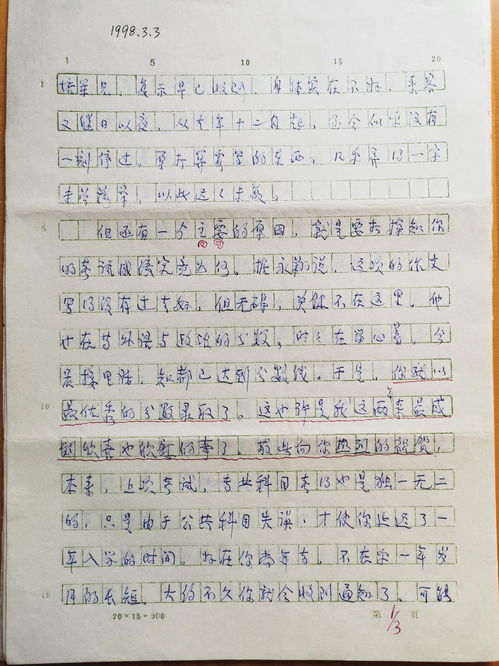 1998.3.3
1 5 10 15 20
1 培军兄,复示早已收到,身体实在不好,来客
又继日以夜,从去年十二月起,迄今似乎没有
一刻停过,原打算寄的东西,只弄得一字
未,以此迟迟未复。
5 但还有一个主要的原因,就是要打探知你
的考试成绩究竟如何。据永翔说,这次的作文
写得没有过去好,但无碍,关键不在这里。他
也在等外语与政治的分数,时时在留心着,今
晨接电话,知都已达到分数线。于是,你就以
10 最优秀的分数录取了。这也许是我这两年来最感
到欣喜也欣慰的事了。我先向你热烈的祝贺,
本来,上次考试,专业科目考得也是独一无二
的,只是由于公共科目失误,才使你延迟了一
年入学的时间。好在你尚年青,不在乎一年岁
15 月的长短。大约不久你就会收到通知了。可能
20×15=300
第 1/3 页